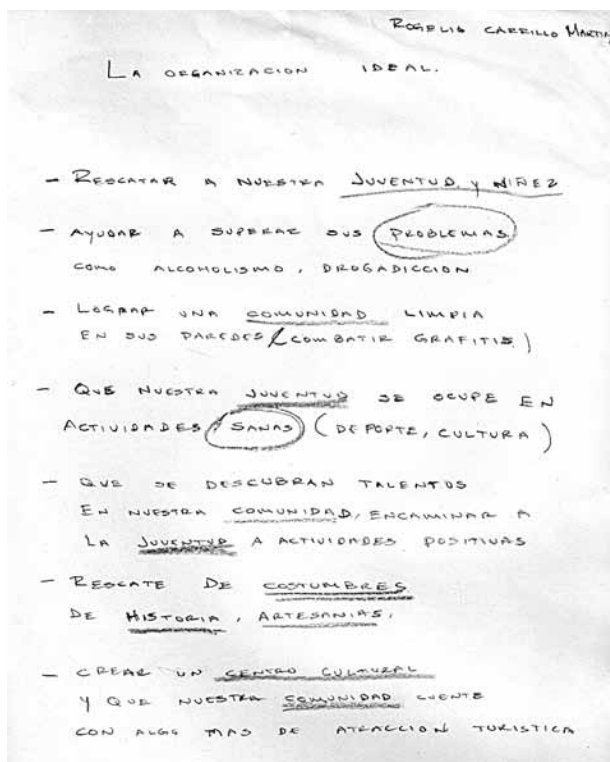 ROGELIO CARRILLO MARTIN
LA ORGANIZACION IDEAL.
- RESCATAR A NUESTRA JUVENTUD Y NIÑEZ
- AYUDAR A SUPERAR SUS PROBLEMAS
COMO ALCOHOLISMO, DROGADICCION
- LOGRAR UNA COMUNIDAD LIMPIA
EN SUS PAREDES (COMBATIR GRAFITIS)
- QUE NUESTRA JUVENTUD SE OCUPE EN
ACTIVIDADES SANAS (DEPORTE, CULTURA)
- QUE SE DESCUBRAN TALENTOS
EN NUESTRA COMUNIDAD, ENCAMINAR A
LA JUVENTUD A ACTIVIDADES POSITIVAS
- RESCATE DE COSTUMBRES
DE HISTORIA, ARTESANIAS,
- CREAR UN CENTRO CULTURAL
Y QUE NUESTRA COMUNIDAD CUENTE
CON ALGO MAS DE ATRACCION TURISTICA